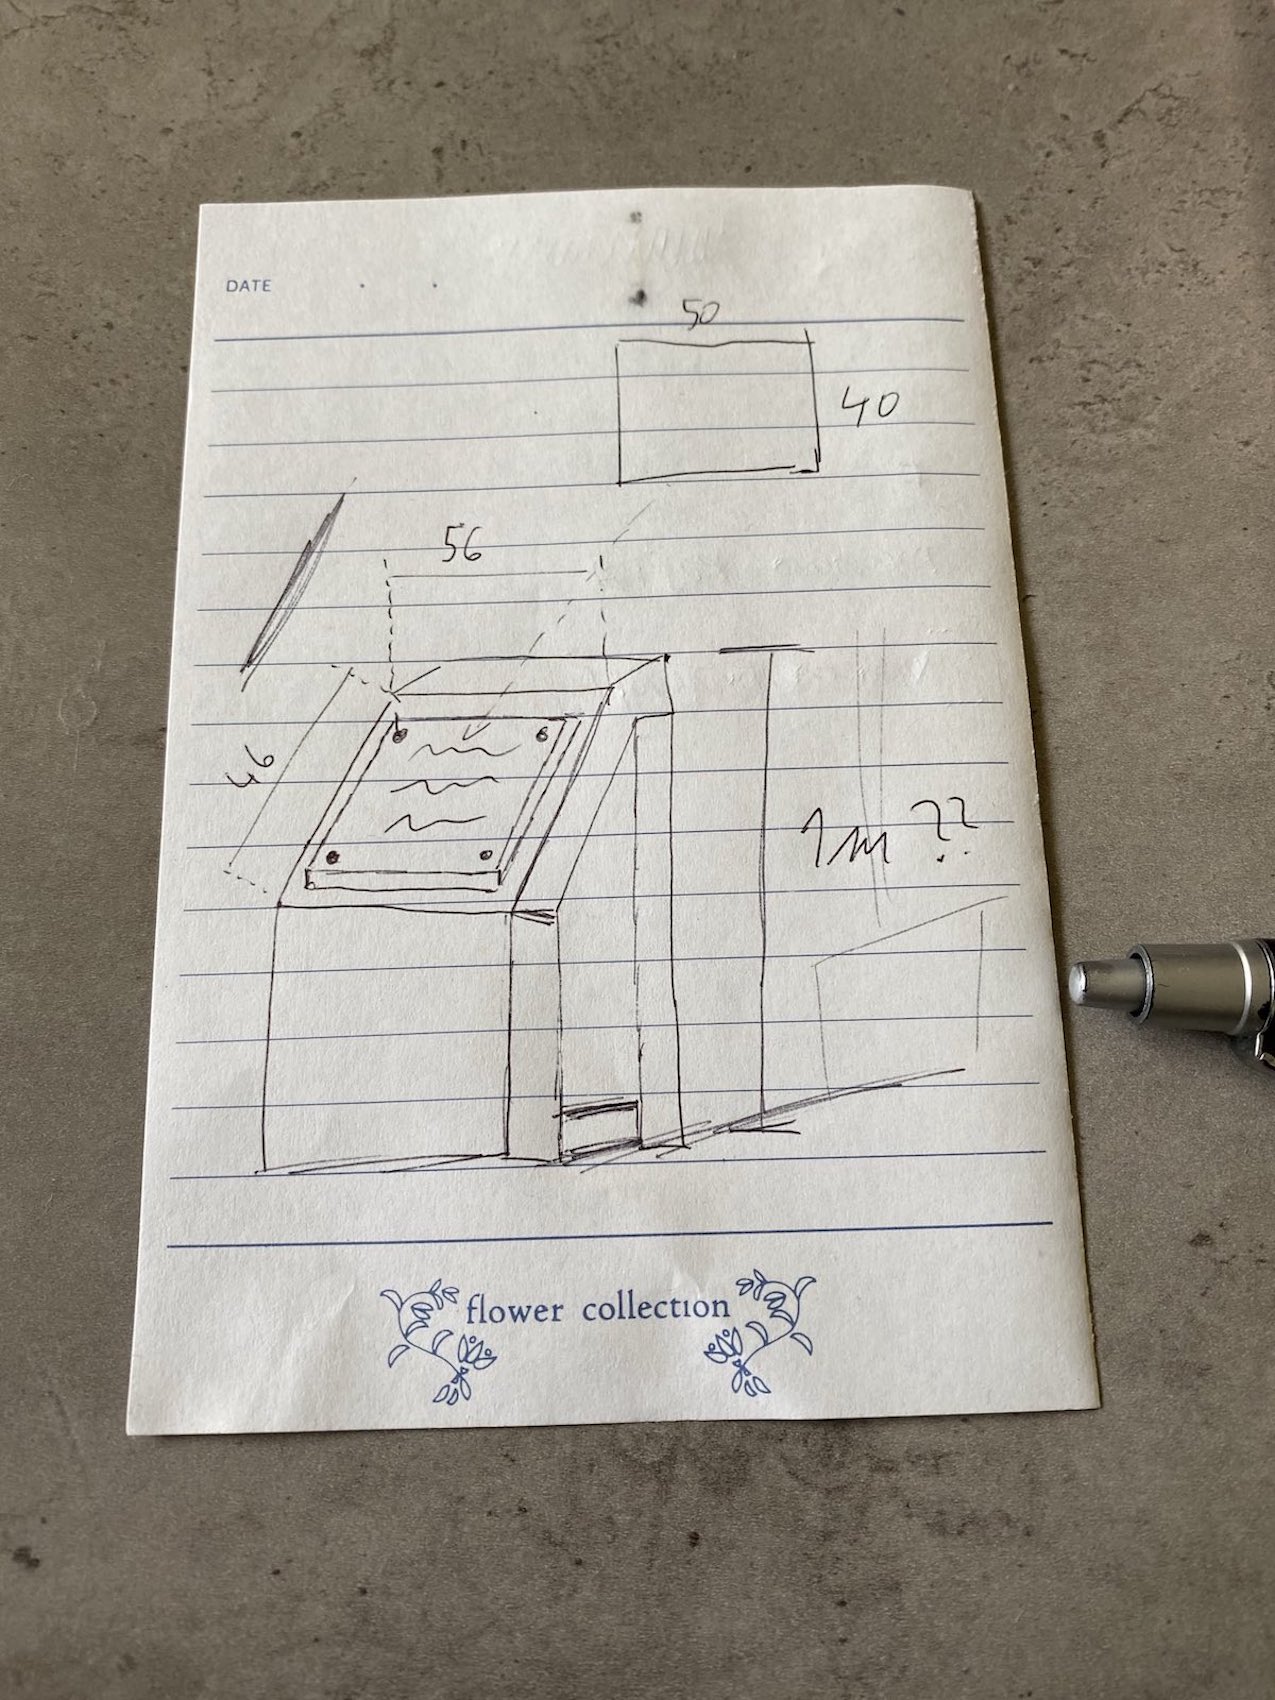 DATE
50
40
56
46
1m ??
flower collection